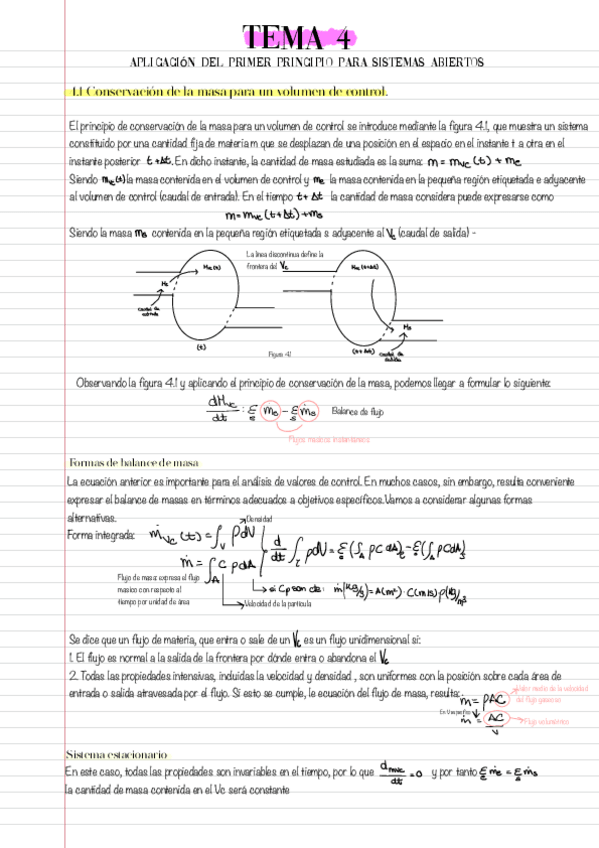 TEMA 4
APLICACIÓN DEL PRIMER PRINCIPIO PARA SISTEMAS ABIERTOS
4.1 Conservación de la masa para un volumen de control.
El principio de conservación de la masa para un volumen de control se introduce mediante la figura 4.1, que muestra un sistema
constituido por una cantidad fija de materia m que se desplazan de una posición en el espacio en el instante t a otra en el
instante posterior t+Δt. En dicho instante, la cantidad de masa estudiada es la suma: m = mvc(t) + me
Siendo mvc(t) la masa contenida en el volumen de control y me la masa contenida en la pequeña región etiquetada e adyacente
al volumen de control (caudal de entrada). En el tiempo t+Δt la cantidad de masa considera puede expresarse como
m = mvc(t+Δt) + ms
Siendo la masa ms contenida en la pequeña región etiquetada s adyacente al Vc (caudal de salida) -
La línea discontinua define la
frontera del Vc
Mvc(t)
Mvc(t+Δt)
Me
Ms
Caudal de
entrada
(t)
(t+Δt)
Caudal de
salida
Figura 4.1
Observando la figura 4.1 y aplicando el principio de conservación de la masa, podemos llegar a formular lo siguiente:
dMvc/dt = Σ ṁe - Σ ṁs Balance de flujo
Flujos masicos instantáneos
Formas de balance de masa
La ecuación anterior es importante para el análisis de valores de control. En muchos casos, sin embargo, resulta conveniente
expresar el balance de masas en términos adecuados a objetivos específicos. Vamos a considerar algunas formas
alternativas.
Densidad
Forma integrada: ṁvc(t) = ∫v ρdV
ṁ = ∫A C ρdA
d/dt ∫ ρdV = Σ(∫A ρC dA) - Σ(∫A ρCdA)s
Flujo de masa: expresa el flujo
masico con respecto al
tiempo por unidad de área
si C ρ son cte: ṁ(kg/s) = A(m²) · C(m/s) ρ(kg/m³)
Velocidad de la partícula
Se dice que un flujo de materia, que entra o sale de un Vc es un flujo unidimensional si:
1. El flujo es normal a la salida de la frontera por dónde entra o abandona el Vc
2. Todas las propiedades intensivas, incluidas la velocidad y densidad , son uniformes con la posición sobre cada área de
entrada o salida atravesada por el flujo. Si esto se cumple, le ecuación del flujo de masa, resulta: ṁ = ρAC
Valor medio de la velocidad
del flujo gaseoso
En V específico
ṁ = AC/v
Flujo volumétrico
Sistema estacionario
En este caso, todas las propiedades son invariables en el tiempo, por lo que dmvc/dt = 0 y por tanto Σ ṁe = Σ ṁs
la cantidad de masa contenida en el Vc será constante